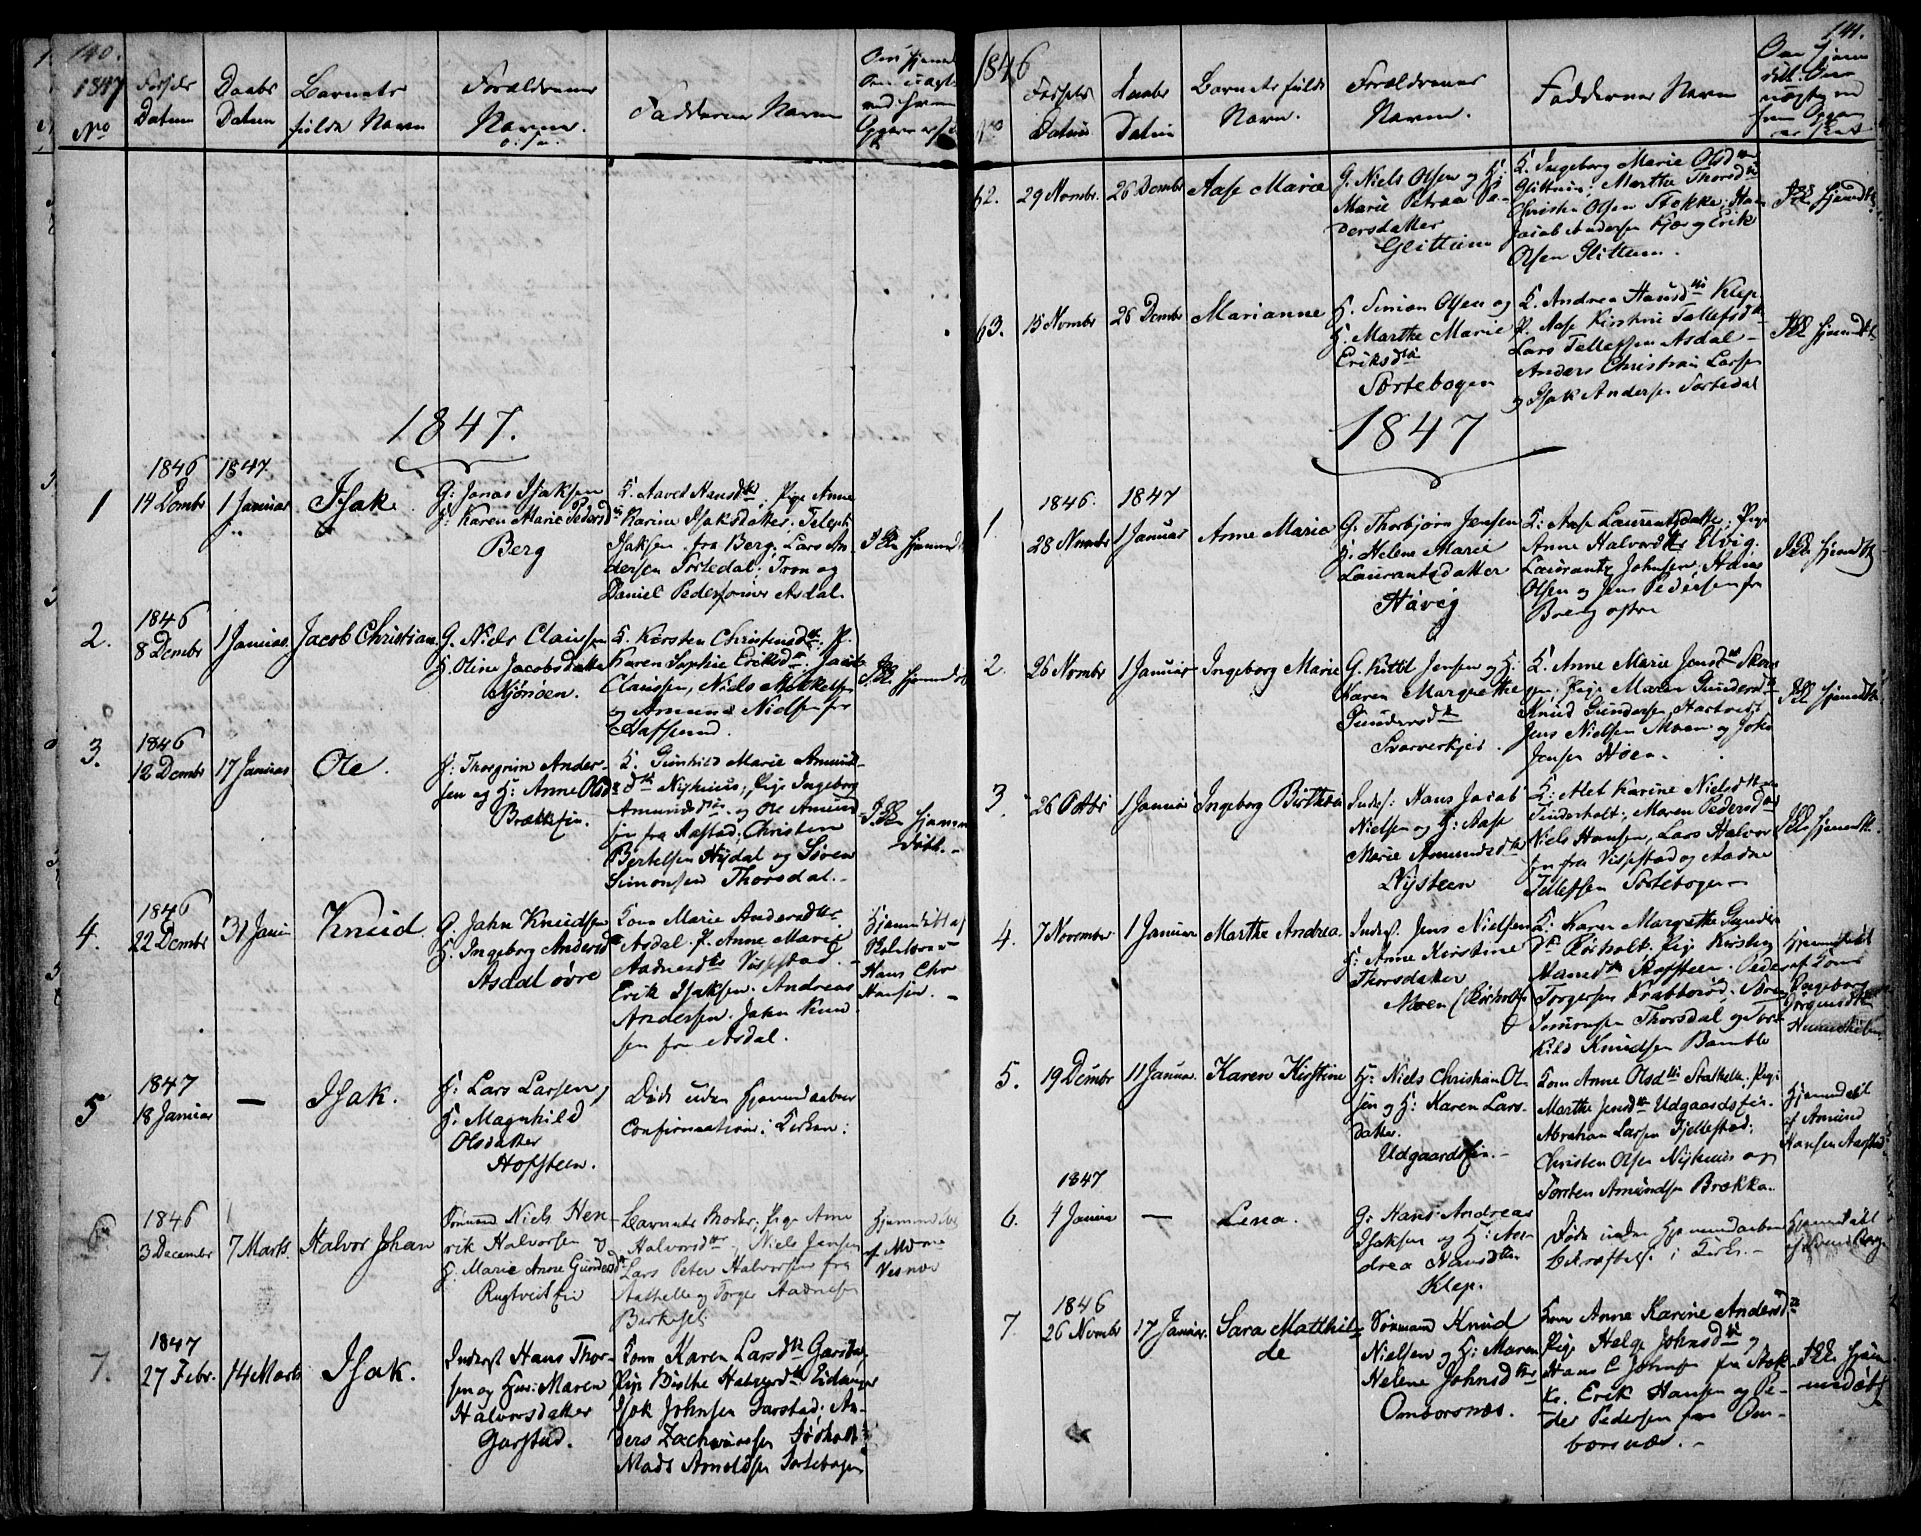 140.
1847
No
Fødsels
Datum
Daabs
Datum
Barnets
fulde Navn
Forældrenes
Navne.
Faddernes Navn
1847.
1
1846
14 Dembr
1847
1 Januar
Isak
G: Jonas Isaksen
H: Karen Marie Pedersd
Berg
K. Aavet Hansdtr; Pige Anne
Karine Isaksdatter. Teleph
Isaksen fra Berg; Lars An-
dersen Tortedal; Tron og
Daniel Pedersønner Asdal.
Ikke hjemmed
2.
1846
8 Dembr
1 Januar
Jacob Christian
G. Niels Claussen
H. Oline Jacobsdatter
Kjønøen.
K. Kirsten Christensdtr. P.
Karen Sophie Eriksdtr. Jacob
Claussen, Niels Mikkelsen
og Amund Nielsen fra
Haffsund.
Ikke hjemmed
3.
1846
12 Dembr
17 Januar
Ole.
H: Thorgrim Ander-
sen og H: Anne Olsd
Brækkejen.
K. Gunhild Marie Amund-
dtr Nyhuus; Pige Ingeborg
Amundsdtr og Ole Amund
sen fra Aastad; Christen
Bertelsen Nydal og Søren
Simonsen Thorsdal.
Ikke hjemme
døbt.
4.
1846
22 Dembr
31 Janu
Knud.
G. Jahn Knudsen
H. Ingeborg Andersd
Asdal øvre
Kone Marie Andersdtr
Asdal. P. Anne Marie
Aadnesdtr Vissestad.
Erik Isaksen. Andreas
Andersen. Jahn Knud
sen fra Asdal.
Hjemmedøbt af
Skolelærer
Hans Chr
Hansen.
5
1847
18 Januar
—
Isak.
H: Lars Larsen
H. Magnhild
Olsdatter
Hofsteen.
Døde uden Hjemmedaabens
Confirmation i Kirken:
6
1846
3 December
7 Marts.
Halvor Johan
Sømand Niels Hen-
rik Halvorsen og
H: Marie Anne Gundersd
Rugtvedtjei
Barnets Moder; Pige Anne
Halvorsdtr, Niels Jansen
Lars Peter Halvorsen fra
Aathelle og Torger Aadnesen
Hjemmedøbt
af
7.
1847
27 Febr.
14 Marts
Isak.
Inderst Hans Thor-
sen og Hus: Maren
Halvorsdatter
Garstad.
Kone Karen Larsdtr Garstad
Pige Birthe Halvordtr Eidanger
Isak Johnsen Garstad; An-
ders Zachariassen
Mads Arnoldsen Tortebogen
141.
1846
No
Fødsels
Datum
Daabs
Datum
Barnets fulde
Navn.
Forældrenes
Navne.
Faddernes Navn
62.
29 Novmbr.
26 Dembr
Aase Marie
G. Niels Olsen og H:
Marie Petraa Pe-
dersdatter
Glittum
K. Ingeborg Marie Olsdtr
Glittum: Marthe Thorsdtr
Christen Olsen Stokke;
Jacob Andersen Kjær og Erik
Olsen Glittum.
Ikke hjemdt
63.
15 Novmbr
26 Dembr
Marianne
H. Simon Olsen og
H. Marthe Marie
Eriksdtr
Tortebogen
K. Andrea Hansdtr Klep
P. Aase Kirstine Tellefsdtr
Lars Tellefsen Asdal
Anders Christian Larsen
og Isak Andersen Tortedal
Ikke hjemdt
1847
1.
1846.
28 Novmbr
1847
1 Januar
Anne Maria
G. Thorbjørn Jensen
H. Helene Marie
Laurantsdatter
Haavig
K: Aase Laurentsdatter; Pige
Anne Halvordtr Elvig.
Laurants Johnsen,
Olsen og Jens Pedersen fra
Berg østre
Ikke hjemdt
2.
26 Novmbr
1 Januar
Ingeborg Marie
G. Kittil Jensen og H:
Karen Margrethe
Gundersdtr
Svarverkjer.
K. Anne Marie Jensdtr
Pige Maren Gundersdtr
Knud Gundersen,
Jens Nielsen Moen og John
Jensen Høen.
Ikke hjemdt
3
26 Octbr
1 Januar
Ingeborg Birthea
Inders: Hans Jacob
Nielsen og H: Aase
Marie Amundsdtr
Nysteen
K: Alet Karine Nielsdtr
Tinderholt; Maren Pedersdtr
Niels Hansen, Lars Halvor
sen fra Vissestad og Aadne
Tellefsen Tortebogen
Ikke hjemdt.
4.
7 November
1 Januar
Marthe Andrea
Inders. Jens Nielsen
H: Anne Kirstine
Thorsdatter
Moen (Rørholt)
K: Karen Margrethe Gunders
dtr Rørholt; Pige Kirsten
Hansdtr Hofsteen. Peder
Torgersen Krabberød. Søren
Simonsen Thorsdal og Tor-
kild Knudsen Bamble
Hjemmedøbt
af Kone
Ingeborg
5.
19 Dembr
11 Januar.
Karen Kirstine
H: Niels Christian Ol-
sen og H: Karen Lars-
datter.
Udgaardsjei.
Kone Anne Olsdtr Stathelle. Pige
Marthe Jensdtr Udgaardsjei.
Abraham Larsen Fjellestad:
Christen Olsen Nyhuus og
Torsten Amundsen Brække.
Hjemmedøbt
af Amund
Hansen Aarstad
6.
1847
4 Januar
—
Lena.
G: Hans Andreas
Isaksen og H: An-
drea Hansdtr
Klep.
Døde uden Hjemmedaabens
bekræftelse i Kirke.
Hjemmedøbt
7.
1846
26 Novmbr
17 Januar.
Sara Matthil-
de
Sømand Knud
Nielsen og H: Maren
Helene Johnsdtr
Omborsnæs.
Kone Anne Karine Andersdtr
Pige Helge Johnsdtr og
Hans C Johnsen fra Stok-
ke. Erik Hansen og Pe-
der Pedersen fra Om-
borsnæs.
Ikke hjem-
medøbt